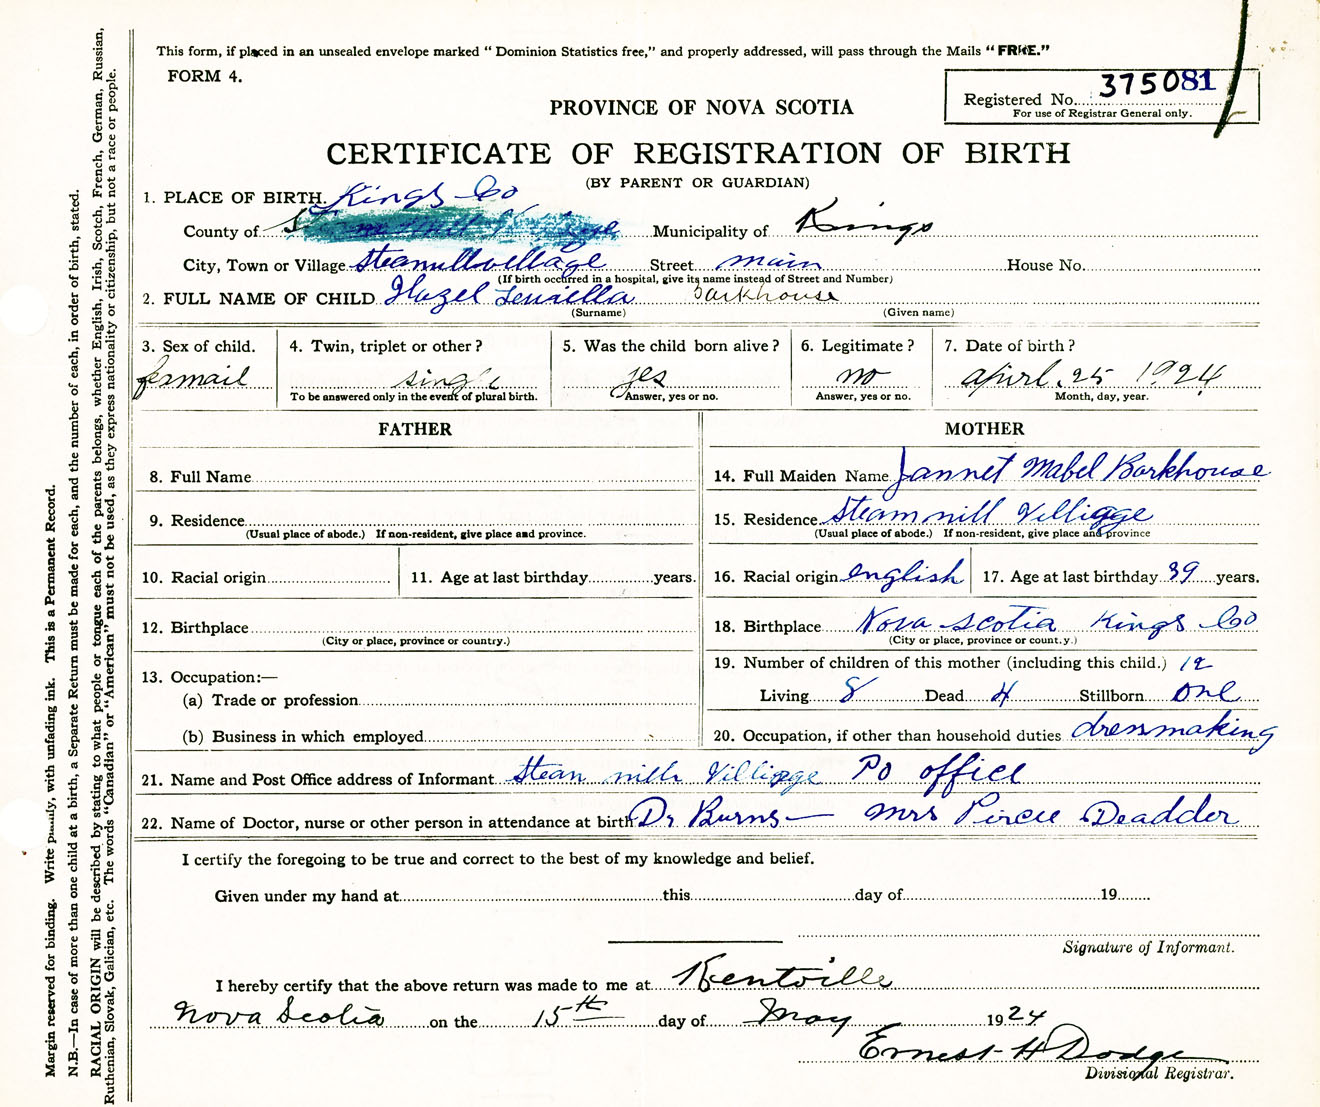 This form, if placed in an unsealed envelope marked "Dominion Statistics free," and properly addressed, will pass through the Mails "FREE."
FORM 4.
Registered No. 375081
For use of Registrar General only.
PROVINCE OF NOVA SCOTIA
CERTIFICATE OF REGISTRATION OF BIRTH
(BY PARENT OR GUARDIAN)
1. PLACE OF BIRTH. Kings Co
County of Municipality of Kings
City, Town or Village Steamillvillage Street main House No.
(If birth occurred in a hospital, give its name instead of Street and Number)
2. FULL NAME OF CHILD Hazel Barkhouse
(Surname) (Given name)
3. Sex of child. 4. Twin, triplet or other? 5. Was the child born alive? 6. Legitimate? 7. Date of birth?
fermail single yes no apirl. 25 1924
To be answered only in the event of plural birth. Answer, yes or no. Answer, yes or no. Month, day, year.
FATHER MOTHER
8. Full Name 14. Full Maiden Name Jannet Mabel Barkhouse
9. Residence 15. Residence Steam mill Villigge
(Usual place of abode.) If non-resident, give place and province. (Usual place of abode.) If non-resident, give place and province
10. Racial origin 11. Age at last birthday years. 16. Racial origin english 17. Age at last birthday 39 years.
12. Birthplace 18. Birthplace Nova scotia Kings Co
(City or place, province or country.) (City or place, province or count.y.)
19. Number of children of this mother (including this child.) 12
13. Occupation:—
(a) Trade or profession Living 8 Dead 4 Stillborn one
(b) Business in which employed 20. Occupation, if other than household duties dressmaking
21. Name and Post Office address of Informant Stean mill Villigge PO office
22. Name of Doctor, nurse or other person in attendance at birth Dr Burns — Mrs Pircu Deadder
I certify the foregoing to be true and correct to the best of my knowledge and belief.
Given under my hand at this day of 19
Signature of Informant.
I hereby certify that the above return was made to me at Kentville
Nova Scotia on the 15th day of May 1924
Ernest H Dodge
Divisional Registrar.
Margin reserved for binding. Write plainly, with unfading ink. This is a Permanent Record.
N.B.—In case of more than one child at a birth, a Separate Return must be made for each, and the number of each, in order of birth, stated.
RACIAL ORIGIN will be described by stating to what people or tongue each of the parents belongs, whether English, Irish, Scotch, French, German, Russian,
Ruthenian, Slovak, Galician, etc. The words "Canadian" or "American" must not be used, as they express nationality or citizenship, but not a race or people.